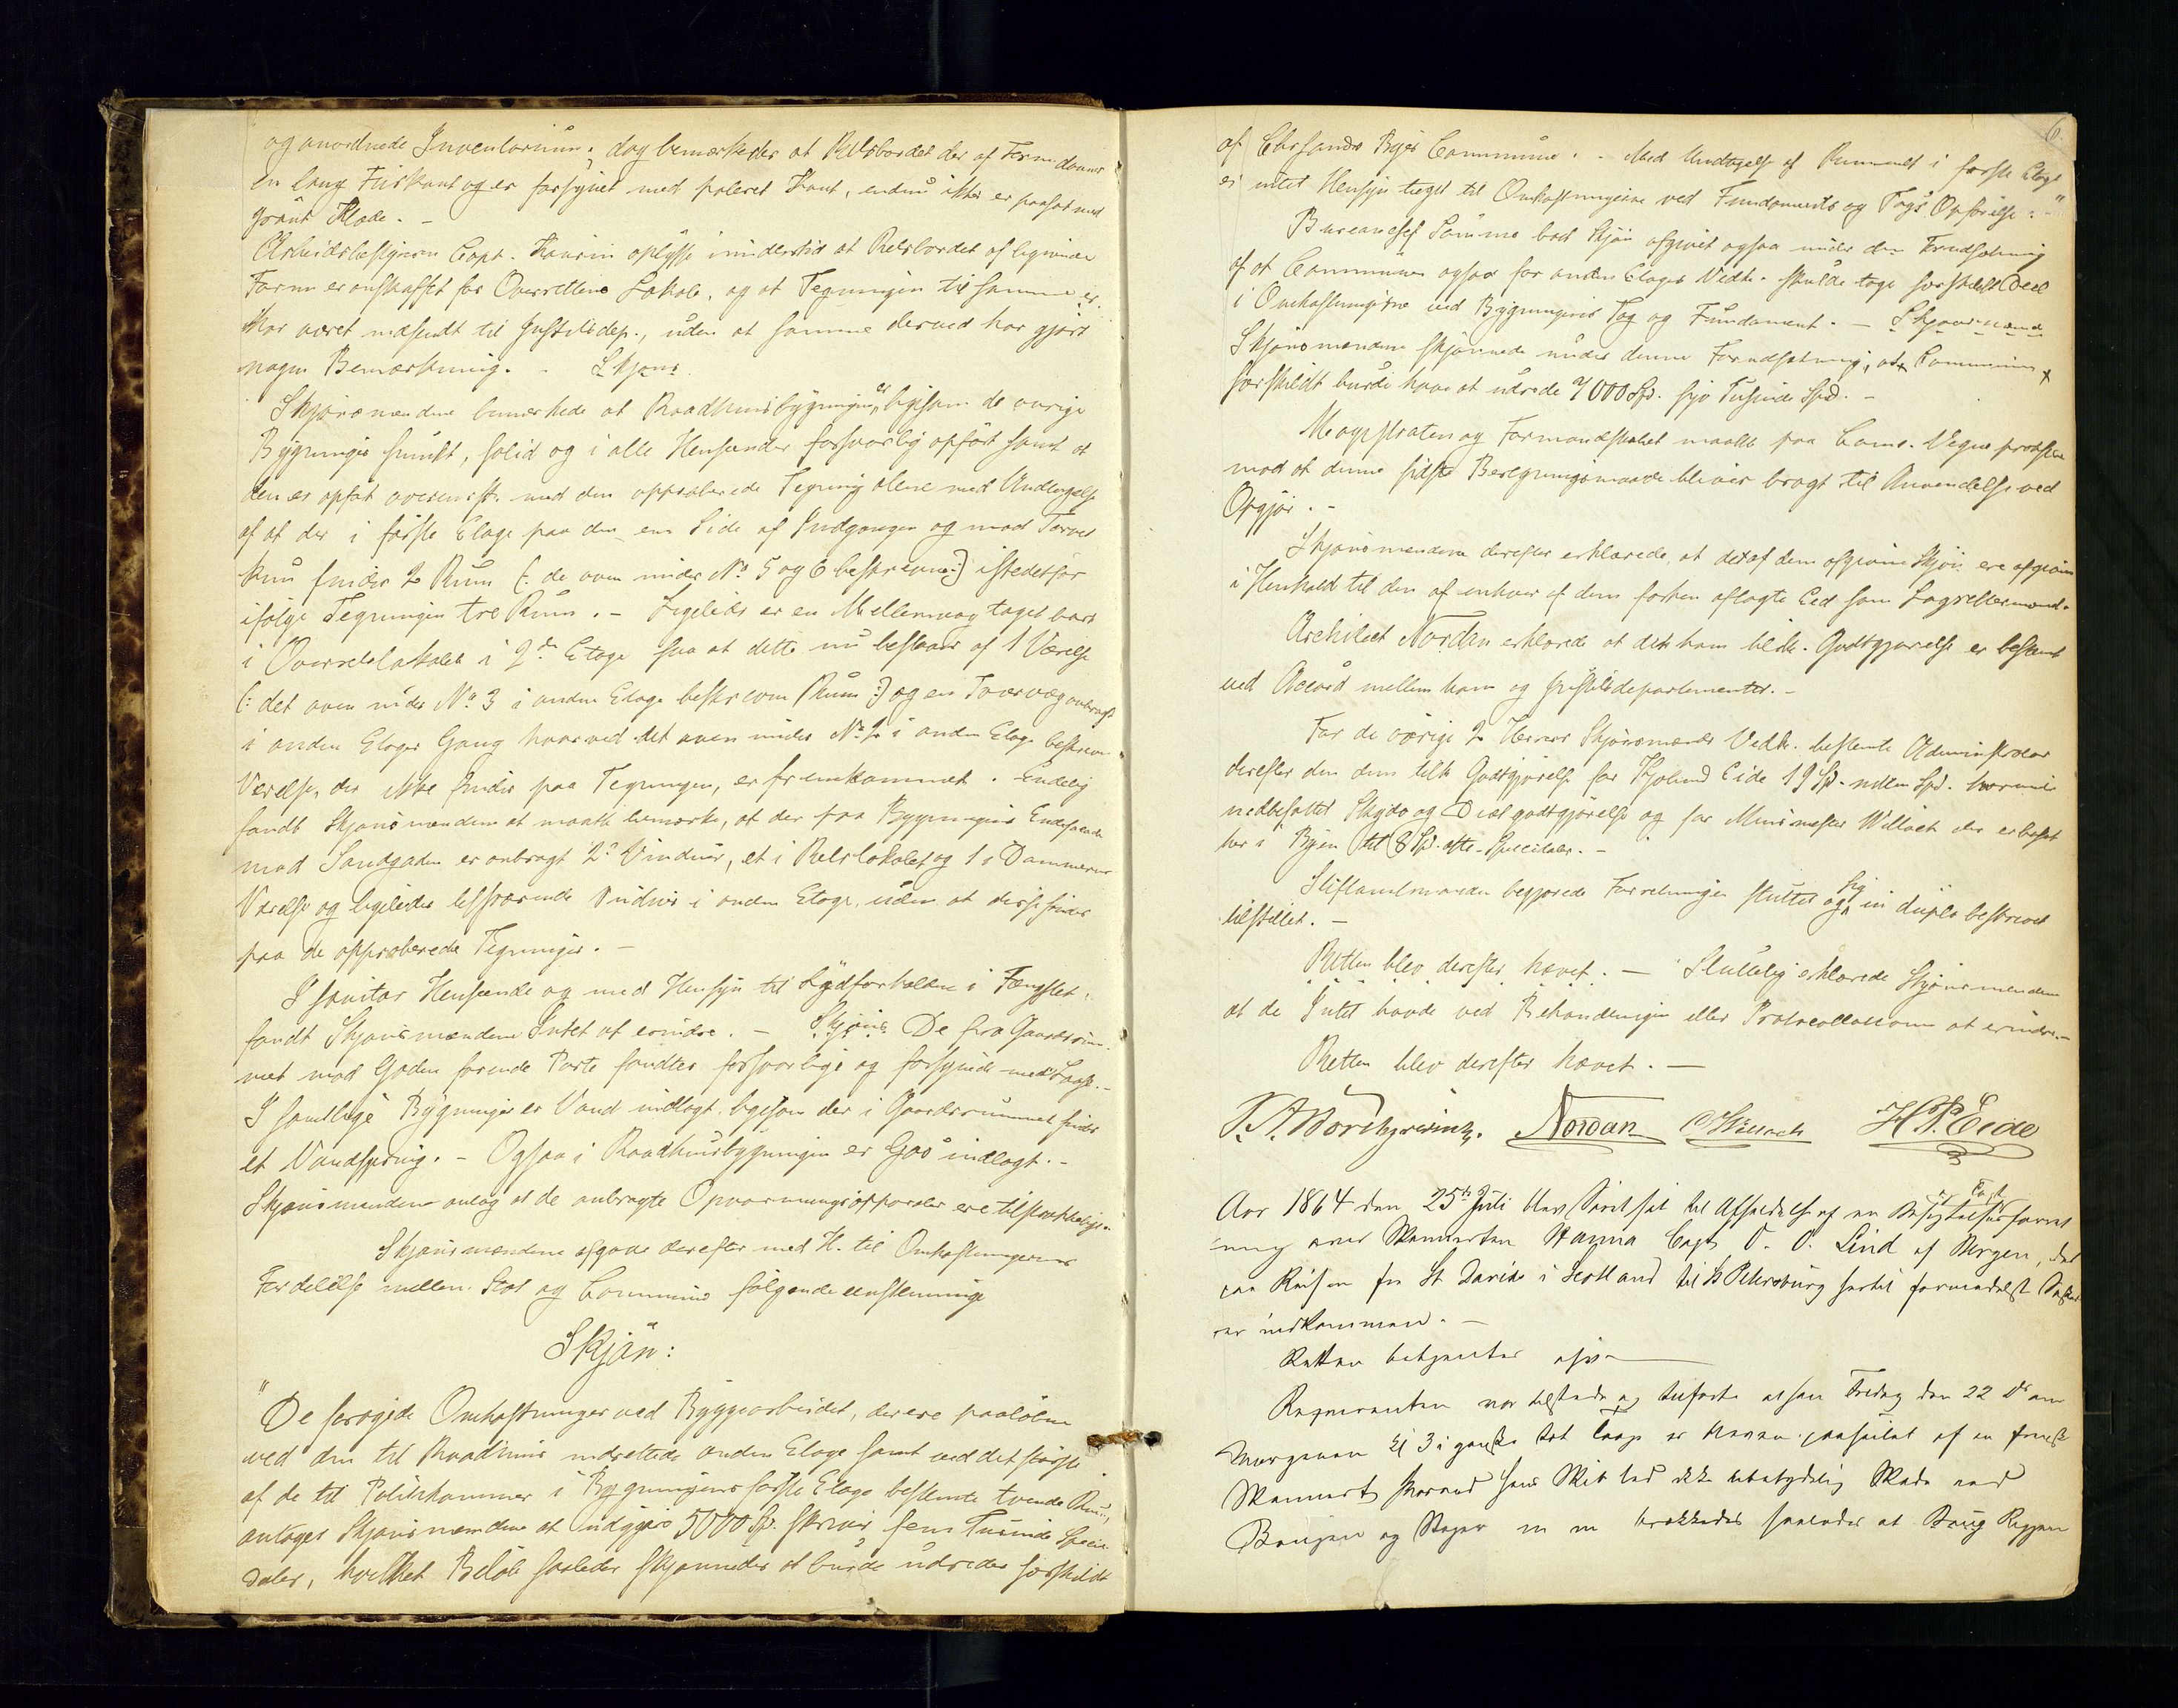 og anordnede Inventarium; dog bemærkedes at Retsbordet der af Form danner
en lang Fiirkant og er forsynet med poleret Kant, endnu ikke er paasat med
grönt Klæde. -
Arbeidsbestyreren Capt. oplyste imidlertid at Retsbordet af lignende
Form er anskaffet for Overrettens Lokale, og at Tegningen til samme
har været indsendt til Justitsdep., uden at samme derved har gjort
nogen Bemærkning. - Skjöns.
Skjönsmændene bemærkede at Raadhuusbygningen er ligesom de övrige
Bygninger smukt, solid og i alle Henseender forsvarlig opfört samt at
den er opfört overensst. med den approberede Tegning alene med Undtagelse
af at der i förste Etage paa den ene Side af Indgangen og mod Torvet
kun findes 2 Rum (: de oven under No 5 og 6 beskrevne :) istedetfor
ifölge Tegningen tre Rum. - Ligeledes er en Mellemvæg taget bort
i Overretslokalet i 2den Etage saa at dette nu bestaaer af 1 Værelse
(: det oven under No 3 i anden Etage beskrevne Rum :) og en Tværvæg anbragt
i anden Etages Gang hvorved det oven under No 2 i anden Etage beskrevne
Værelse, der ikke findes paa Tegningen, er fremkommet. Endelig
fandt Skjönsmændene at maatte bemærke, at der paa Bygningens Endefacade
mod Gaden er anbragt 2de Vinduer, et i Retslokalet og 1 i Dommerens
Værelse og ligeledes tilsvarende Vinduer i anden Etage, uden at disse findes
paa de approberede Tegninger. -
I sanitær Henseende og med Hensyn til Lydforholdene i Fængslet
fandt Skjönsmændene Intet at erindre. - Skjöns De fra Gaardsrum-
met mod Gaden förende Porte fandtes forsvarlige og forsynede med Laase. -
I samtlige Bygninger er Vand indlagt ligesom der i Gaardsrummet findes
et Vandspring. - Ogsaa i Raadhuusbygningen er Gas indlagt. -
Skjönsmændene antog at de anbragte Opvarmningsapparater ere tilstrækkelige.
Skjönsmændene afgave derefter med H. til Omkostningernes
Fordelelse mellem Stat og Commune fölgende eenstemmige
Skjön:
"De forögede Omkostninger ved Byggearbeidet, der ere paalöbne
ved den til Raadhuus indrettede anden Etage samt ved det störste
af de til Politikammer i Bygningens förste Etage bestemte tvende Rum,
antages Skjönsmændene at udgjöre 5000 Sp. skriver fem Tusinde Specie-
daler, hvilket Belöb saaledes skjönnedes at burde udredes særskildt
6.
af Chrsands Byes Commune. - Med Undtagelse af Rummet i förste Etage
er intet Hensyn taget til Omkostningerne ved Fundaments og Tags Opförelse. -"
Bureauchef bad Skjön afgivet ogsaa under den Forudsætning
af at Communen ogsaa for anden Etages Vedk. skulde tage særskildt Deel
i Omkostningerne ved Bygningens Tag og Fundament. -
Skjönsmændene skjönnede under denne Forudsætning, at Communen
særskildt burde have at udrede 7000 Sp. syv Tusinde Spd. -
Magistraten og Formandskabet maatte paa Comm. Vegne protestere
mod at denne sidste Beregningsmaade bliver bragt til Anvendelse ved
Opgjör. -
Skjönsmændene derefter erklærede, at det af dem afgivne Skjön ere afgivne
i Henhold til den af enhver af dem forhen aflagte Eed som Lagrettesmænd.
Architect Nordan erklærede at den ham tilk. Godtgjörelse er bestemt
ved Accord mellem ham og Justitsdepartementet. -
For de övrige 2 Herrer Skjönsmænds Vedk. bestemte Administrator
derefter den dem tilk. Godtgjörelse for Eide 19 Sp. nitten Spd. hvorunder
indbefattet Skyds og Diætgodtgjörelse og for Muurmester Willoch der er bosat
her i Byen til 8 Sp. otte Speciedaler. -
Stiftamtmanden begjærede Forretningen sluttet og sig in duplo beskrevet
tilstillet. -
Retten blev derefter hævet. - Sluttelig erklærede Skjönsmændene
at de Intet havde ved Behandlingen eller Protocollationen at erindre. -
Retten blev derefter hævet. -
Nordan Willoch H P Eide
Aar 1864 den 25de Juli blev Söret sat til Afholdelse af en Besigtelsesforret
ning over Skonnerten Hanna Capt O. O. Lind af Bergen, der
paa Reisen fra St Davids i Scotland til St Petersburg hertil formedelst
er indkommen. -
Retten betjentes
Reqvirenten var tilstede og anförte at han Fredag den 22 Ds om
Morgenen Kl 3 i ganske tæt Taage er bleven paaseilet af en fransk
Skonnert hvorved hans Skib led ikke ubetydelig Skade ved
Bougen og Stagen m m brækkedes saaledes at Riggen